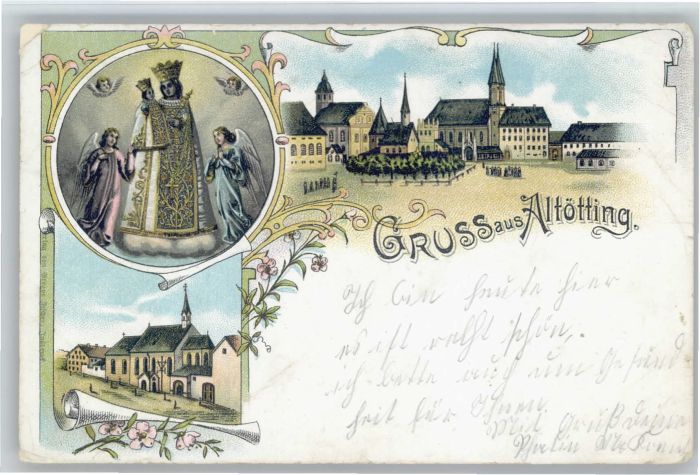 Gruss aus Altötting.
Ich bin heute hier
es ist recht schön,
ich bette auch um Gesund
heit für Ihnen
Mit Gruß